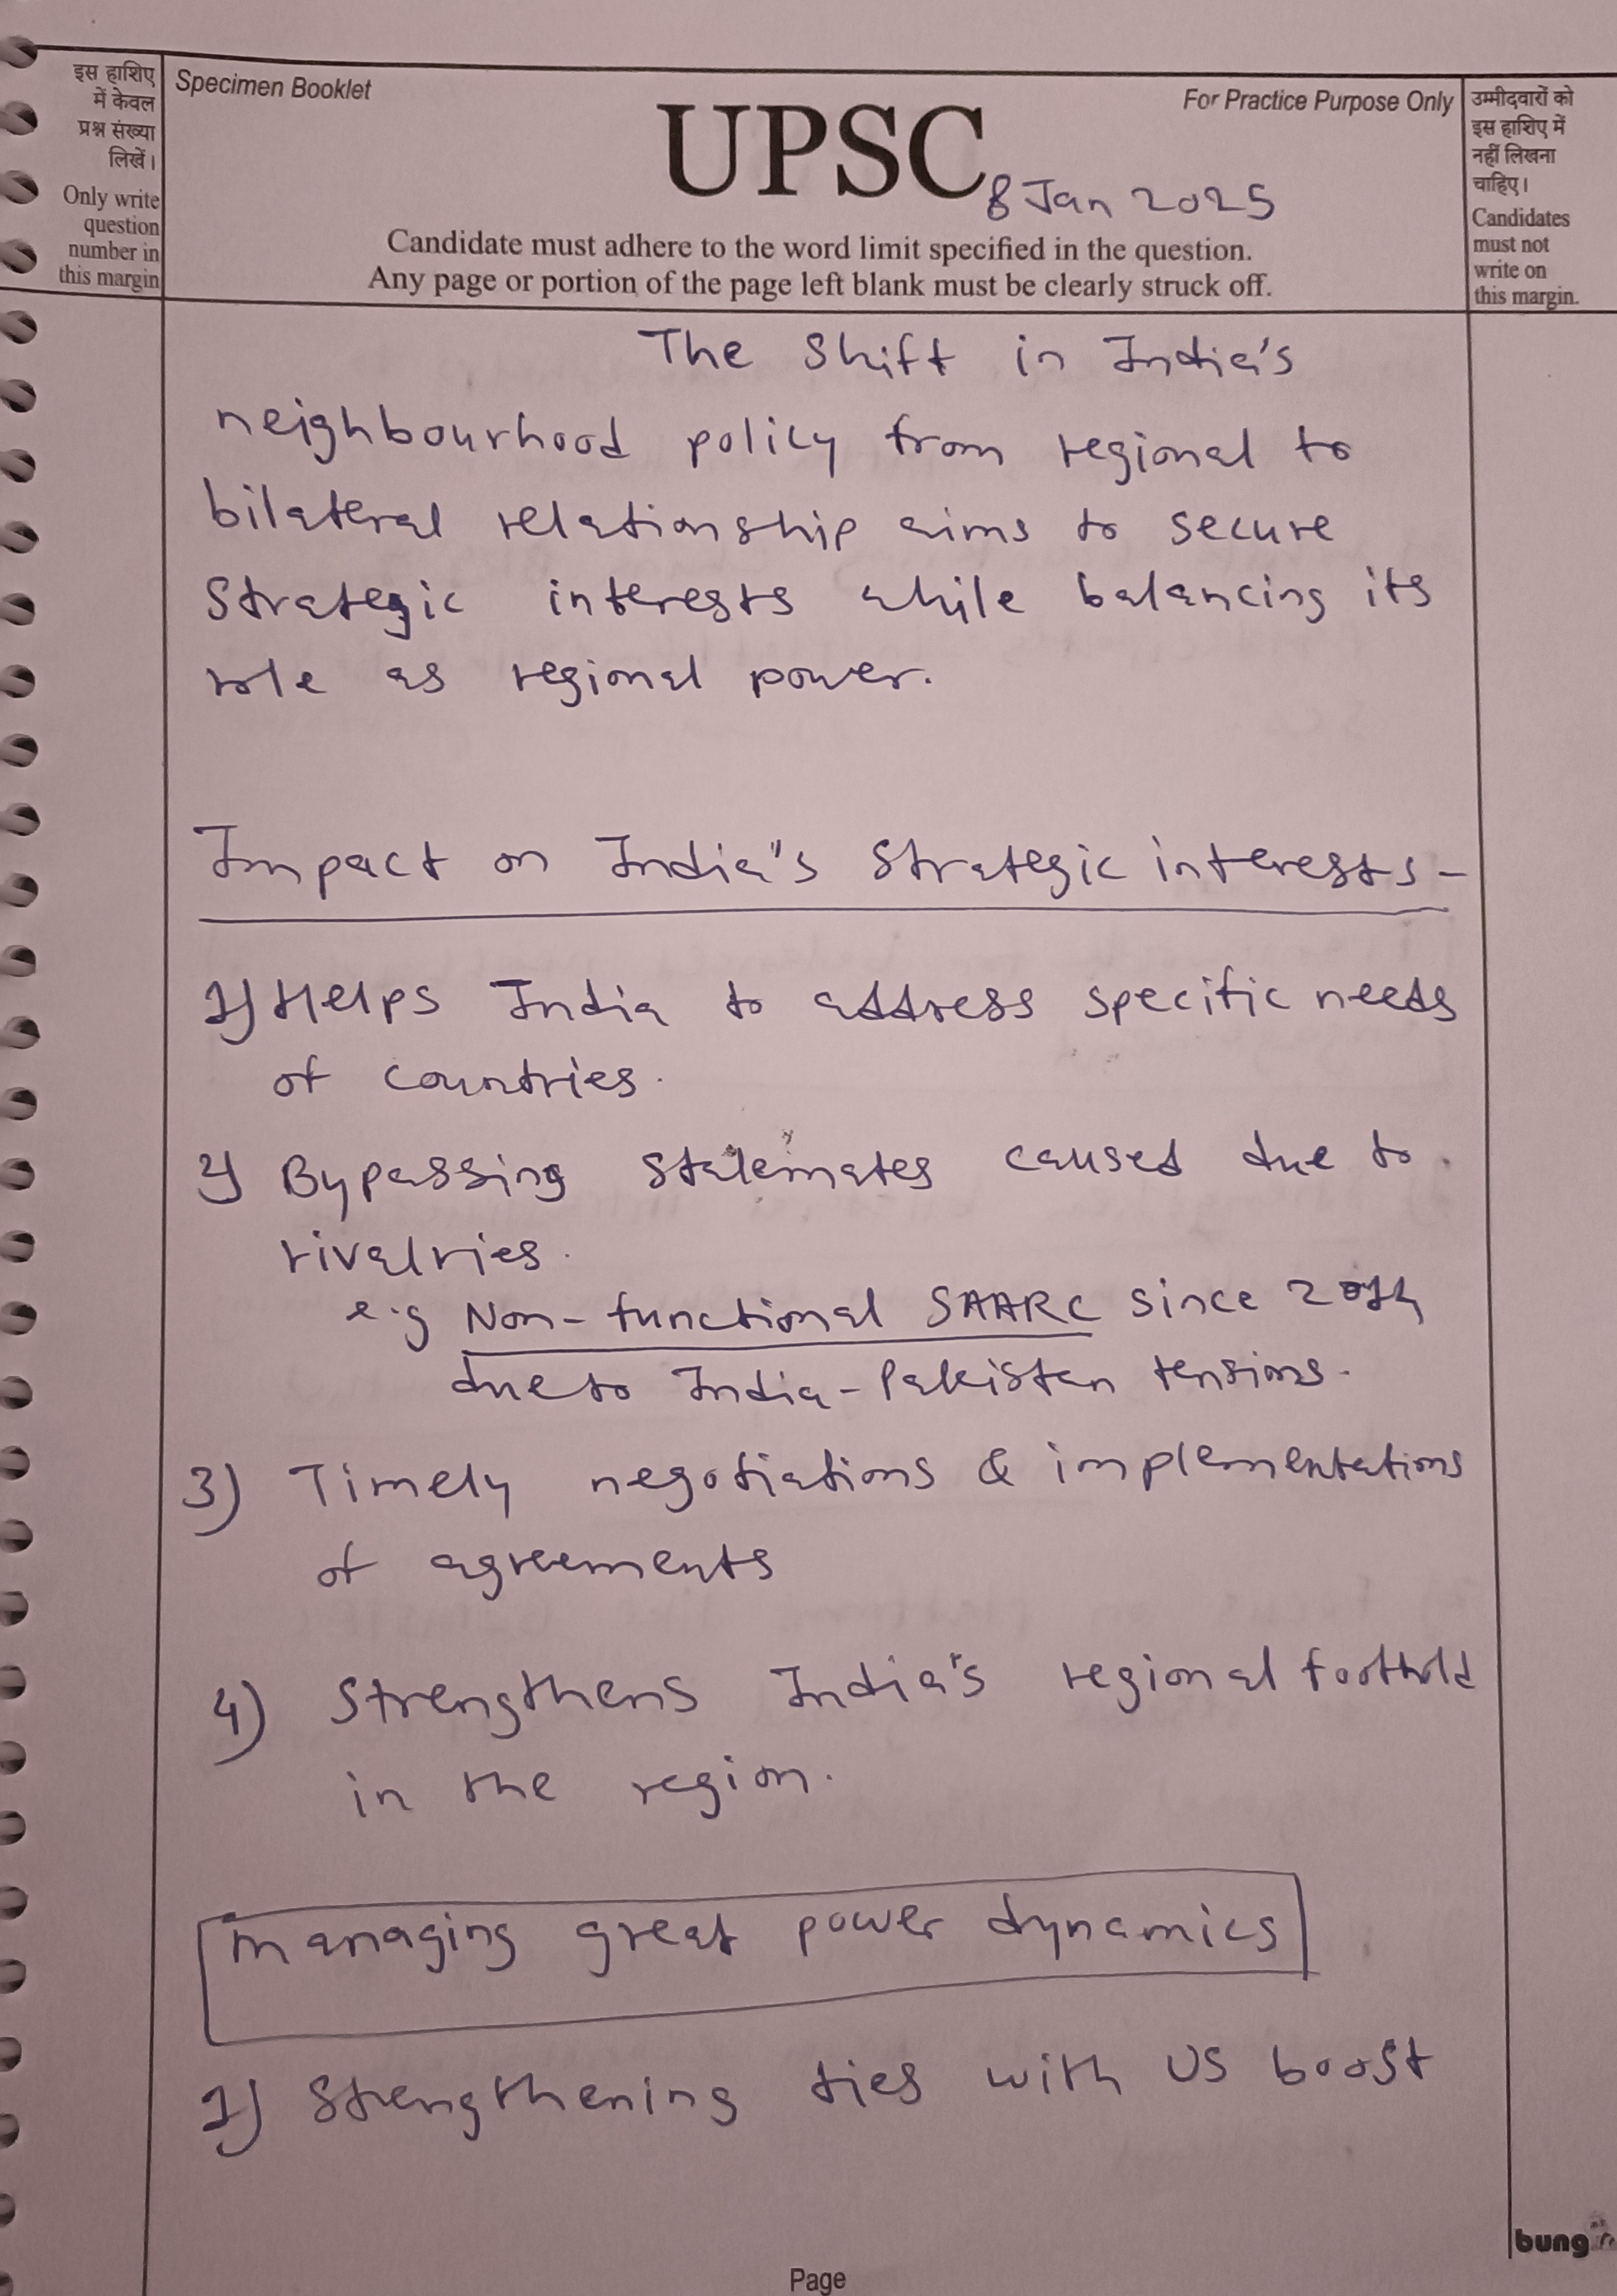 इस हाशिए
में केवल
प्रश्न संख्या
लिखें।
Only write
question
number in
this margin
Specimen Booklet
For Practice Purpose Only
UPSC
8 Jan 2025
Candidate must adhere to the word limit specified in the question.
Any page or portion of the page left blank must be clearly struck off.
उम्मीदवारों को
इस हाशिए में
नहीं लिखना
चाहिए।
Candidates
must not
write on
this margin.
The Shift in India's
neighbourhood policy from regional to
bilateral relationship aims to secure
Strategic interests while balancing its
role as regional power.
Impact on India's Strategic interests-
1) Helps India to address specific needs
of countries.
2) Bypassing Stalemates caused due to
rivalries.
e.g Non-functional SAARC since 2014
due to India-Pakistan tensions.
3) Timely negotiations & implementations
of agreements
4) Strengthens India's regional foothold
in the region.
Managing great power dynamics
1) Strengthening ties with US boost
bung
Page